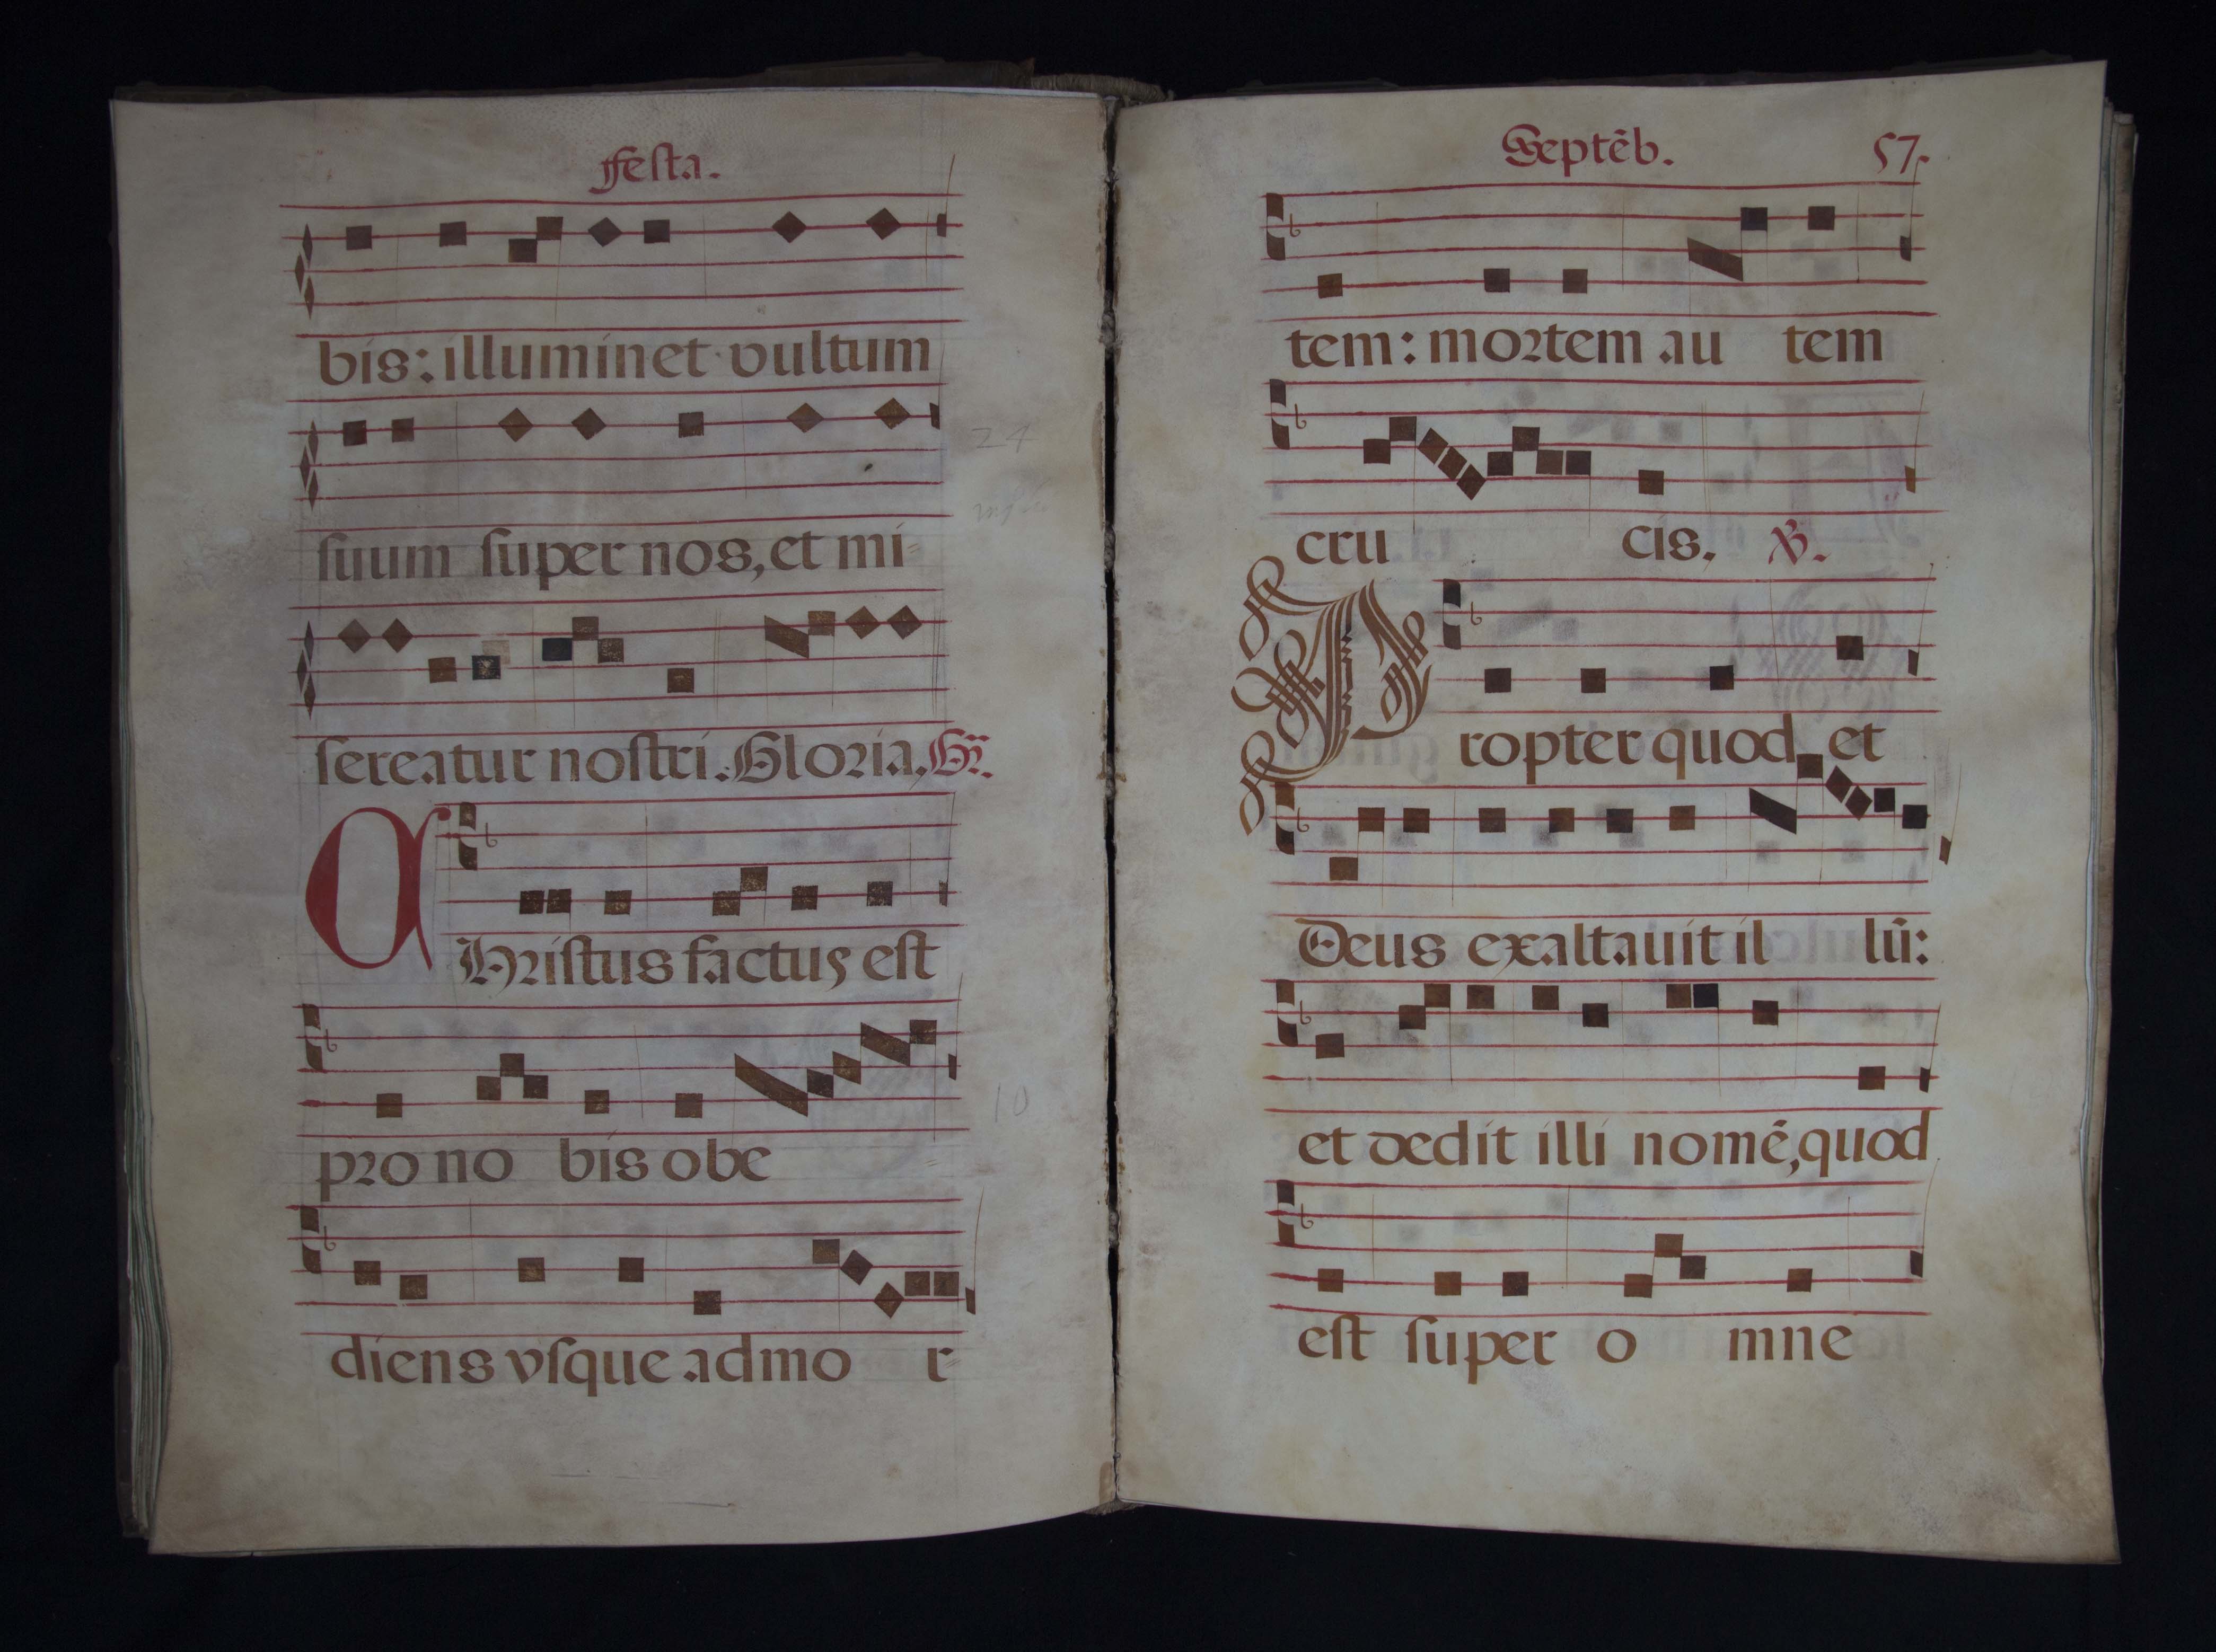 Festa.
bis: illuminet vultum
ſuum ſuper nos, et mi=
ſereatur noſtri. Gloria. Gr̃.
CHriſtus factus eſt
pro no bis obe=
diens vſque ad mo r=
24
10
Septẽb. 57.
tem: mortem au tem
cru cis. ℣.
Propter quod et
Deus exaltauit il lũ:
et dedit illi nomẽ, quod
eſt ſuper o mne